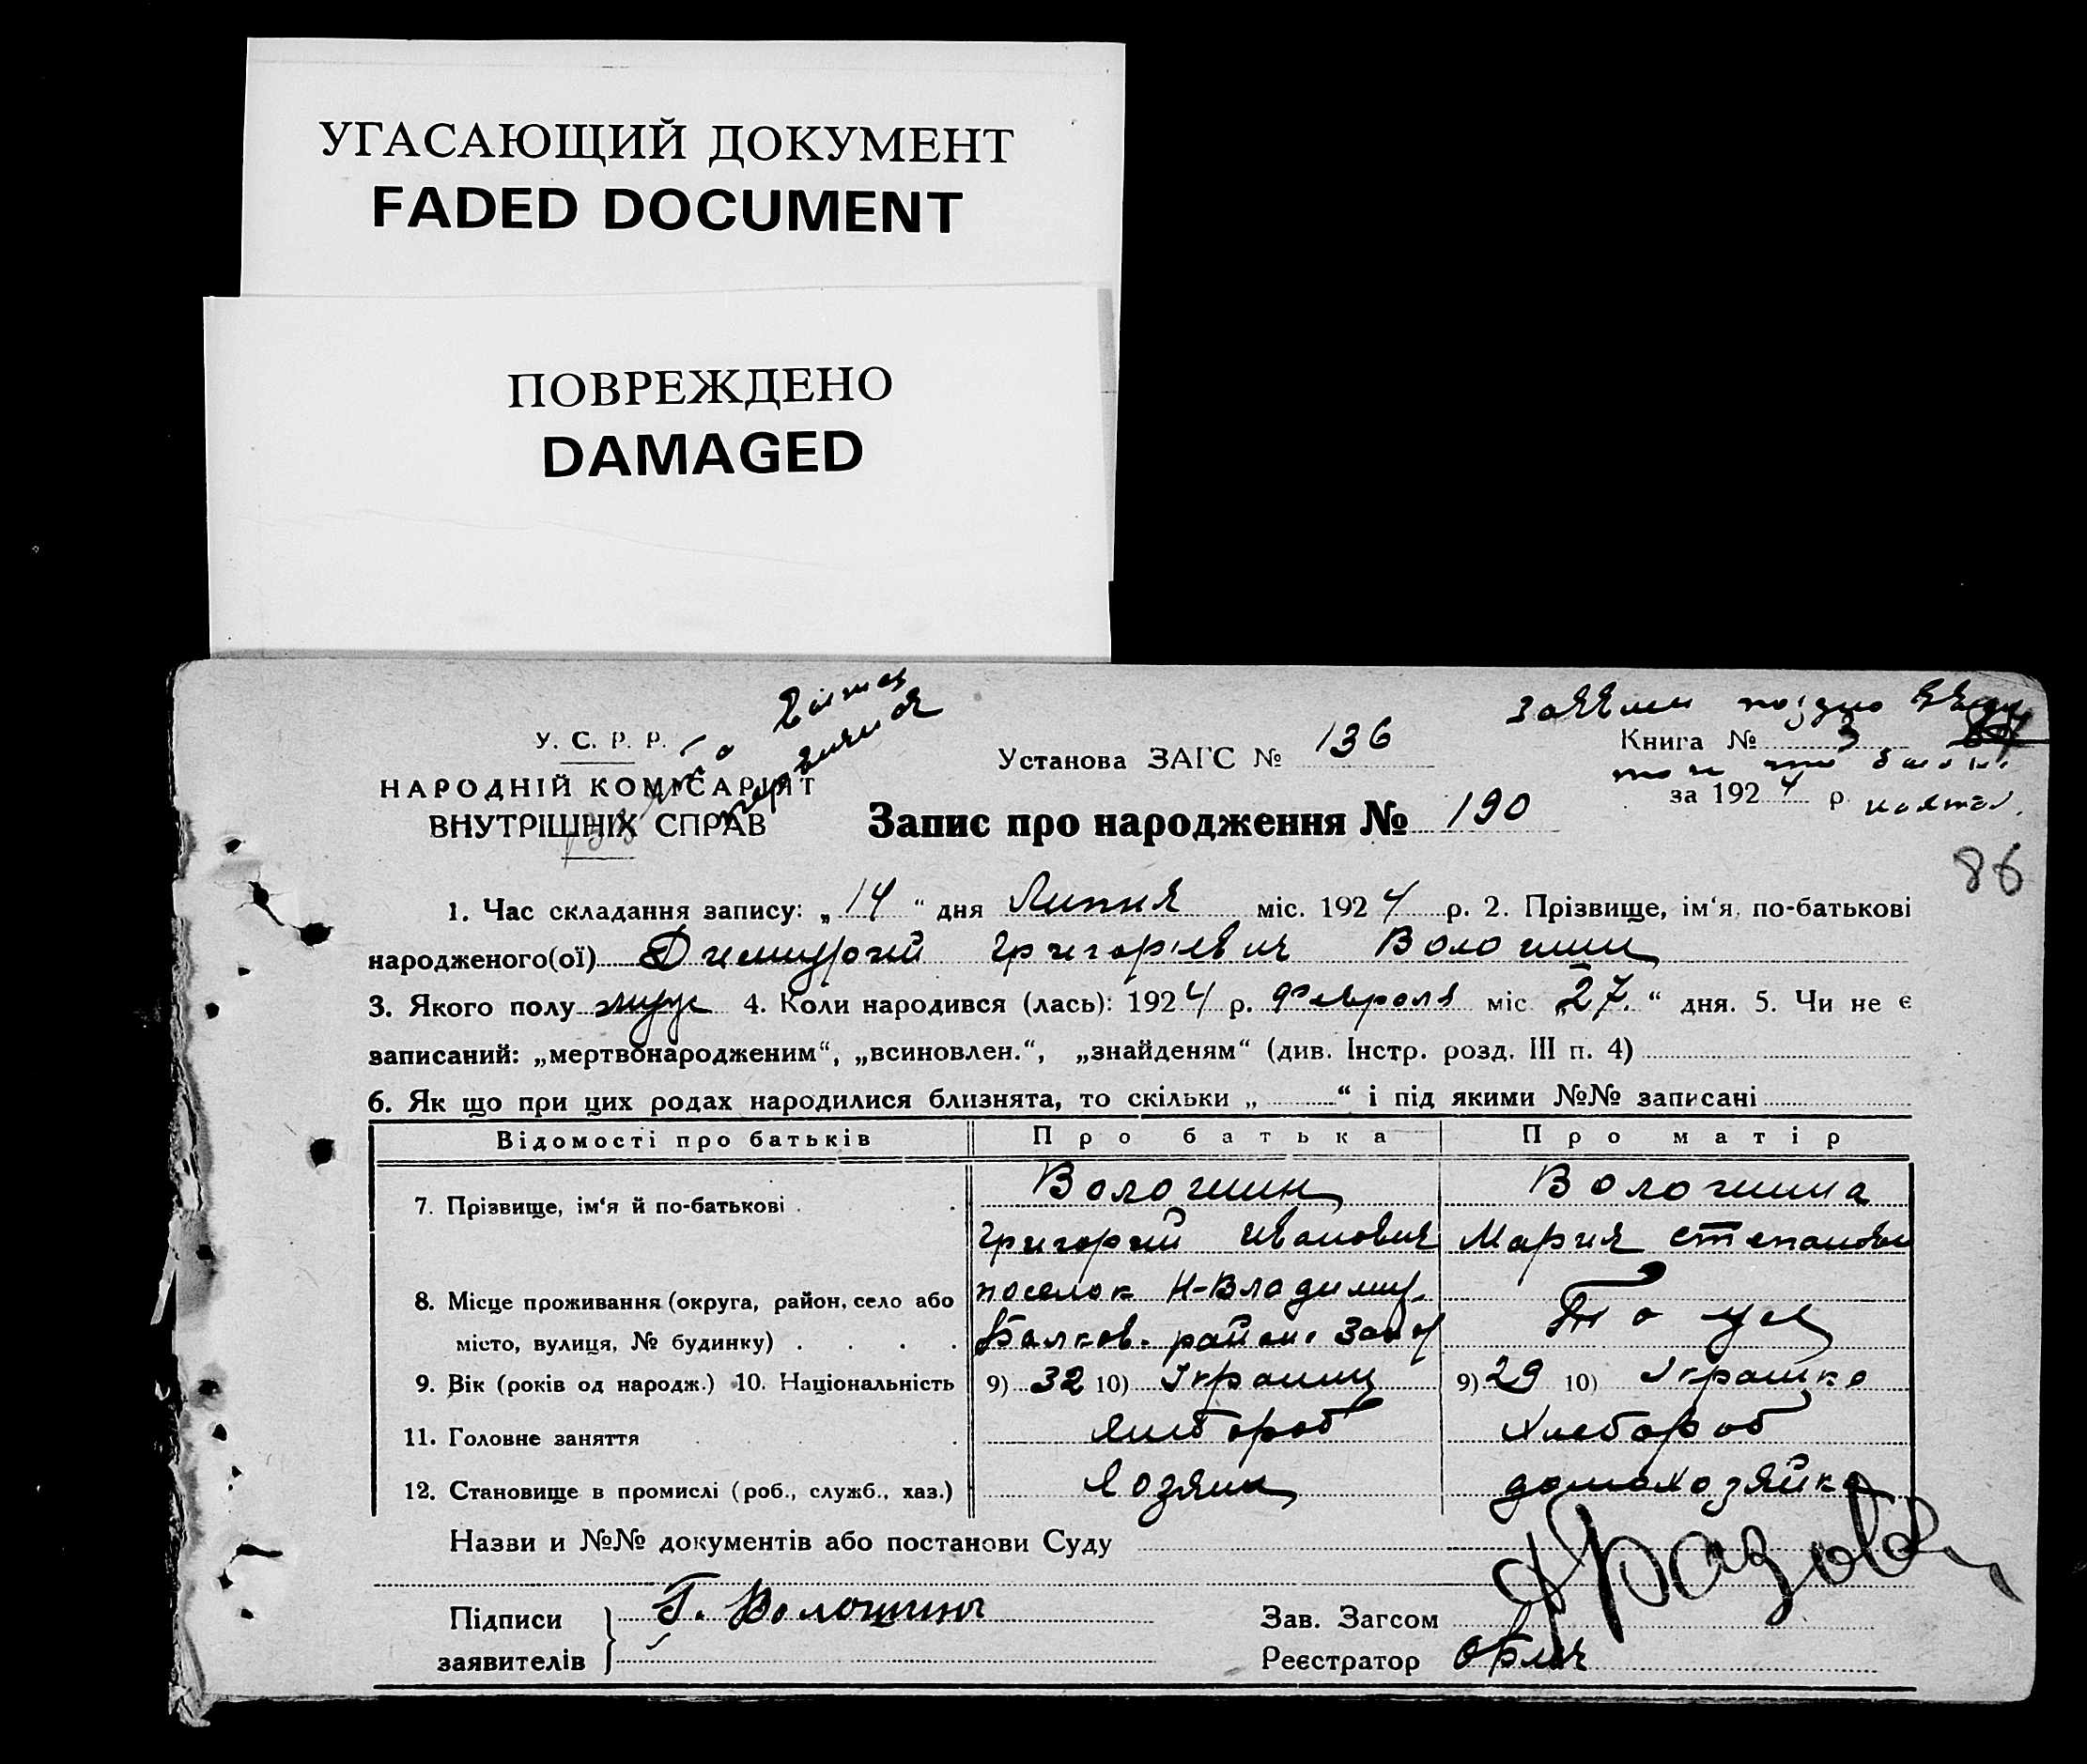 УГАСАЮЩИЙ ДОКУМЕНТ
FADED DOCUMENT
ПОВРЕЖДЕНО
DAMAGED
У. С. Р. Р.
НАРОДНІЙ КОМІСАРІЯТ
ВНУТРІШНІХ СПРАВ
Установа ЗАГС № 136
Заявлен поздно
Книга № 3
за 1924 р.
Запис про народження № 190
86
1. Час складання запису: „14“ дня Липня міс. 1924 р. 2. Прізвище, ім‘я, по-батькові
народженого(ої) Димитрий Григоріевич Волошин
3. Якого полу муж 4. Коли народився (лась): 1924 р. Февраля міс. „27.“ дня. 5. Чи не є
записаний: „мертвонародженим“, „всиновлен.“, „знайденям“ (див. Інстр. розд. III п. 4)
6. Як що при цих родах народилися близнята, то скільки „ “ і під якими №№ записані
Відомості про батьків Про батька Про матір
7. Прізвище, ім‘я й по-батькові Волошин Волошина
Григорий Иванович Мария Степановн
8. Місце проживання (округа, район, село або поселок Н-Владимир. То же
місто, вулиця, № будинку) Балков. район
9. Вік (років од народж.) 10. Національність 9) 32 10) Украинц 9) 29 10) Украинка
11. Головне заняття Хлебороб Хлебороб
12. Становище в промислі (роб., служб., хаз.) Хозяин домохозяйка
Назви и №№ документів або постанови Суду
Підписи Г. Волошинъ Зав. Загсом
заявителів Реєстратор